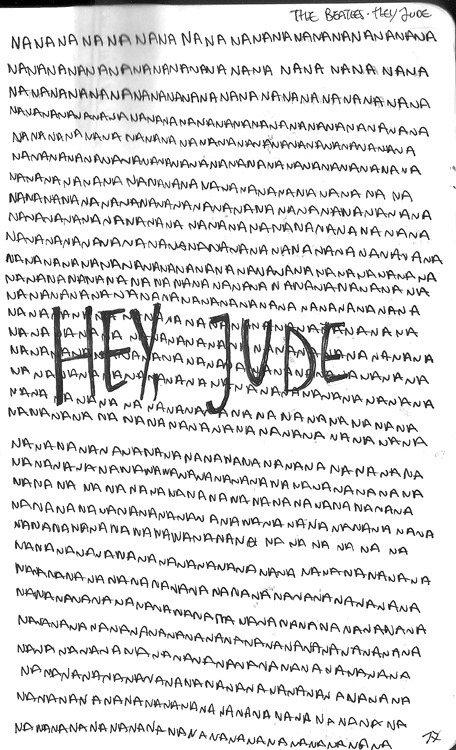 THE BEATLES - HEY JUDE
NANANA NANA NANA NANA NANANANANANANANANANA
NANANANANANANANANANANANA NANA NANA NANA NANA
NANANANANANANANANANANANANANANANANANANANANA
NANANANANANANANANANANANANANANANANANANANANANA
NANANANA NANA NANANA NANANANANANANANANANANANA
NANANANANANANANANANANANANANANANANANANANANANA
NANANANANANA NANANANA NANANANANANANANANA NA NA
NANANANANANANANANANANANANANANANANANANANANANA
NANANANANANANANANANA NANANANANANANANANANANANA
NANANANANANANANANANANANANANANANANANANANANANANA
NANANANANANANANANANANANANANANANANANANANANANA
NANANANANANANANANANANANANANANANANANANANANANA
NANANANANANANANANANANANANANANANANANANANANANA
HEY, JUDE
NANANANANA NA NANANANANANANANANANANANANANANA
NANANANANANANANANANANANANANANANANANA NANANA
NANANANANANANANANANANANANANANANA NANANANANA
NANANA NANANANANANANANANANANANANANANANANANA
NANANA NA NANANANANANANANANANANANANANANANA
NANANANANANANANANANANAN ANANANANANANANANANANA
NANANANANANANANANANANANANA NA NA NA NA NA
NANANANANANANANANANANANANANANA NANANANANANANA
NANANANANANANANANANANANANANANANANANANANANA
NANANANANANANANANANANANANANANANANANANANANANA
NANANANANANANANANANANANANANANANANANANANANANA
NANANANANANANANANANANANANANANANANANANANANA
NANANANANANANANANANANANANANANANANANANANANA
NANANANANANANANANANANANANANANANANANANANA
NANANANANANANANANANANANANANANANANANANANA